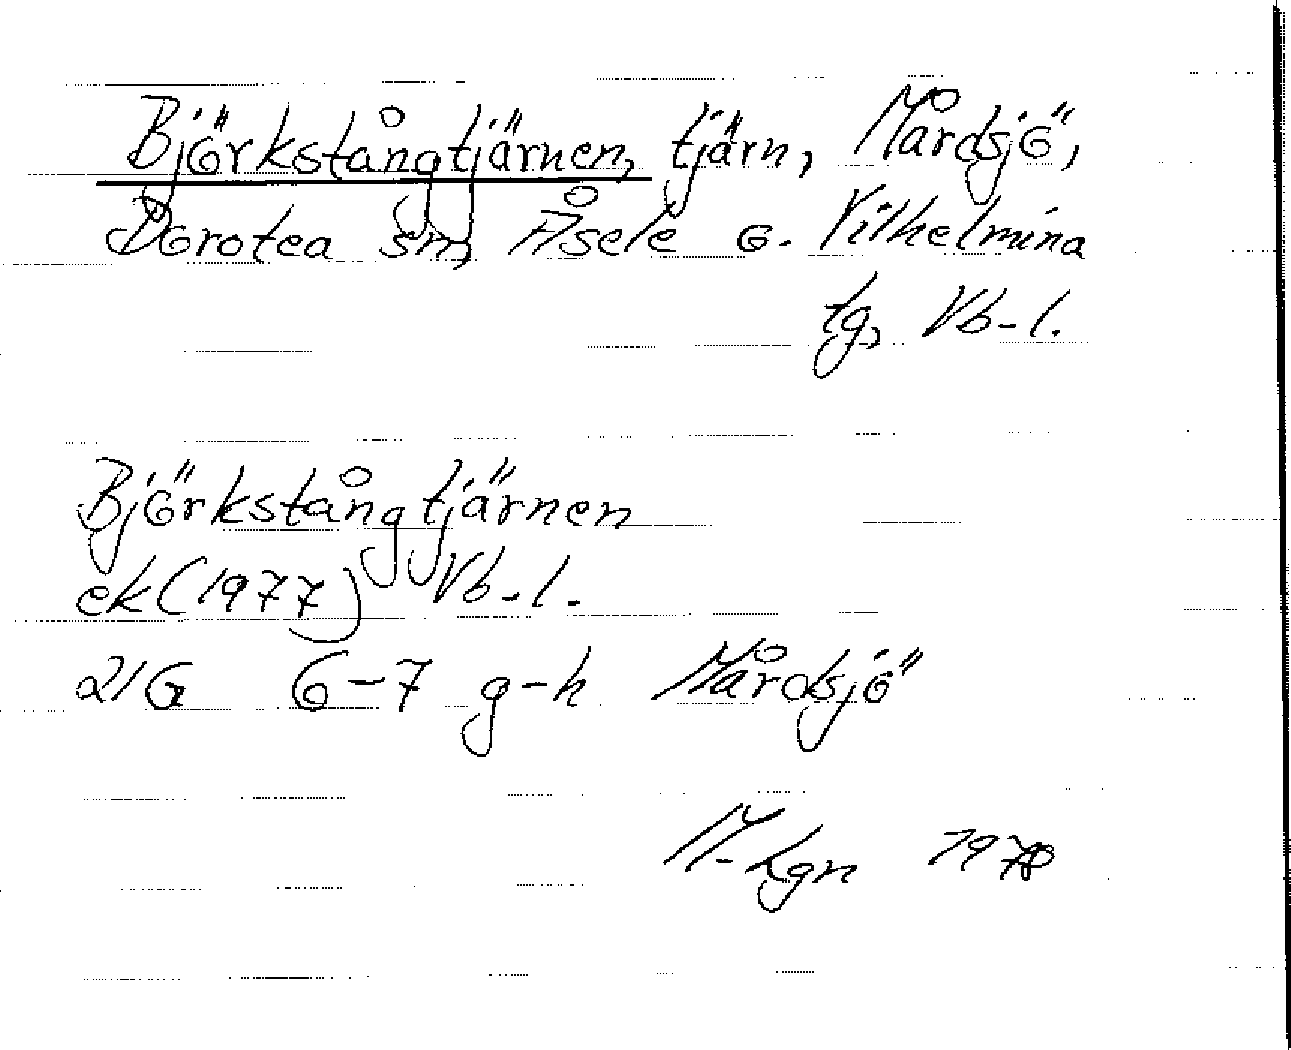 Björkstångtjärnen, tjärn, Mårdsjö,
Dorotea sn, Åsele o. Vilhelmina
tg, Vb-l.
Björkstångtjärnen
ek(1977) Vb-l.
21G 6-7 g-h Mårdsjö
1978